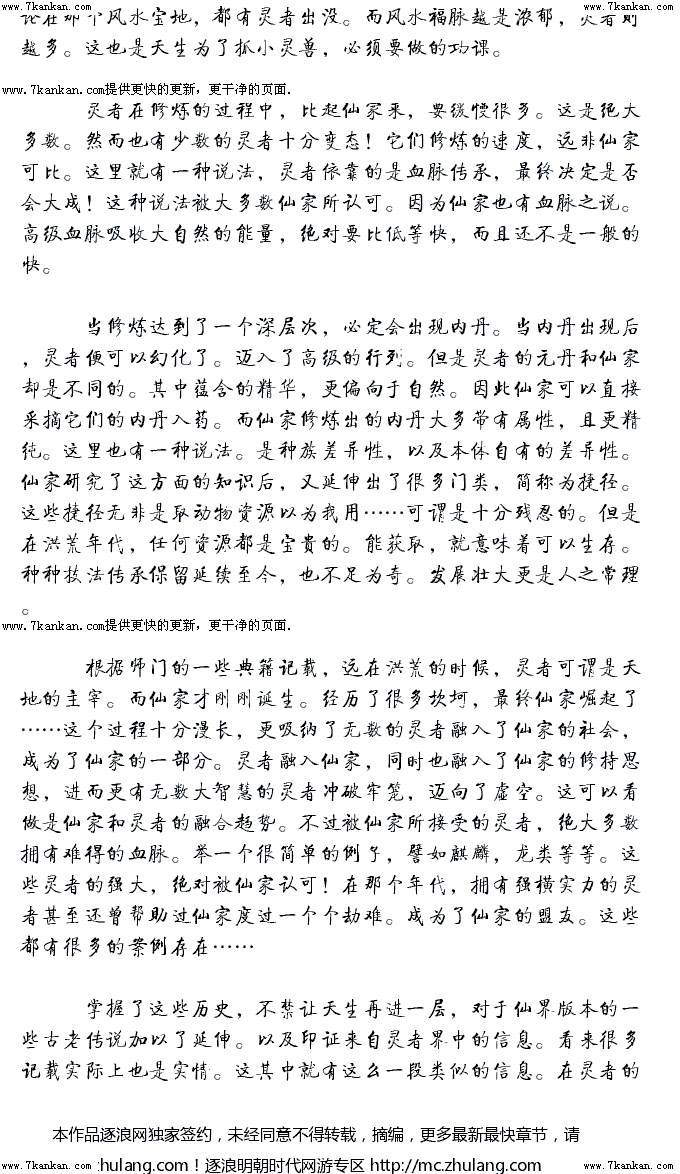 www.7kankan.com www.7kankan.com
论在那个风水宝地，都有灵者出没。而风水福脉越是浓郁，灵者则
越多。这也是天生为了抓小灵兽，必须要做的功课。
www.7kankan.com提供更快的更新，更干净的页面.
灵者在修炼的过程中，比起仙家来，要缓慢很多。这是绝大
多数。然而也有少数的灵者十分变态！它们修炼的速度，远非仙家
可比。这里就有一种说法，灵者依靠的是血脉传承，最终决定是否
会大成！这种说法被大多数仙家所认可。因为仙家也有血脉之说。
高级血脉吸收大自然的能量，绝对要比低等快，而且还不是一般的
快。
当修炼达到了一个深层次，必定会出现内丹。当内丹出现后
，灵者便可以幻化了。迈入了高级的行列。但是灵者的元丹和仙家
却是不同的。其中蕴含的精华，更偏向于自然。因此仙家可以直接
采摘它们的内丹入药。而仙家修炼出的内丹大多带有属性，且更精
纯。这里也有一种说法。是种族差异性，以及本体自有的差异性。
仙家研究了这方面的知识后，又延伸出了很多门类，简称为捷径。
这些捷径无非是取动物资源以为我用……可谓是十分残忍的。但是
在洪荒年代，任何资源都是宝贵的。能获取，就意味着可以生存。
种种技法传承保留延续至今，也不足为奇。发展壮大更是人之常理
。
www.7kankan.com提供更快的更新，更干净的页面.
根据师门的一些典籍记载，远在洪荒的时候，灵者可谓是天
地的主宰。而仙家才刚刚诞生。经历了很多坎坷，最终仙家崛起了
……这个过程十分漫长，更吸纳了无数的灵者融入了仙家的社会，
成为了仙家的一部分。灵者融入仙家，同时也融入了仙家的修持思
想，进而更有无数大智慧的灵者冲破牢笼，迈向了虚空。这可以看
做是仙家和灵者的融合趋势。不过被仙家所接受的灵者，绝大多数
拥有难得的血脉。举一个很简单的例子，譬如麒麟，龙类等等。这
些灵者的强大，绝对被仙家认可！在那个年代，拥有强横实力的灵
者甚至还曾帮助过仙家度过一个个劫难。成为了仙家的盟友。这些
都有很多的案例存在……
掌握了这些历史，不禁让天生再进一层，对于仙界版本的一
些古老传说加以了延伸。以及印证来自灵者界中的信息。看来很多
记载实际上也是实情。这其中就有这么一段类似的信息。在灵者的
本作品逐浪网独家签约，未经同意不得转载，摘编，更多最新最快章节，请
www.7kankan.com zhulang.com！逐浪明朝时代网游专区 http://mc.zhulang.com www.7kankan.com